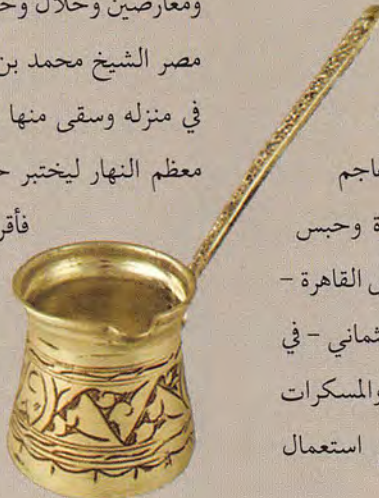 ومعارضين وحلال وحـ
مصر الشيخ محمد بن
في منزله وسقى منها
معظم النهار ليختبر حـ
فأقر
ـاجم
ـة وحبس
ـى القاهرة –
ـثماني – في
والمسكرات
استعمال